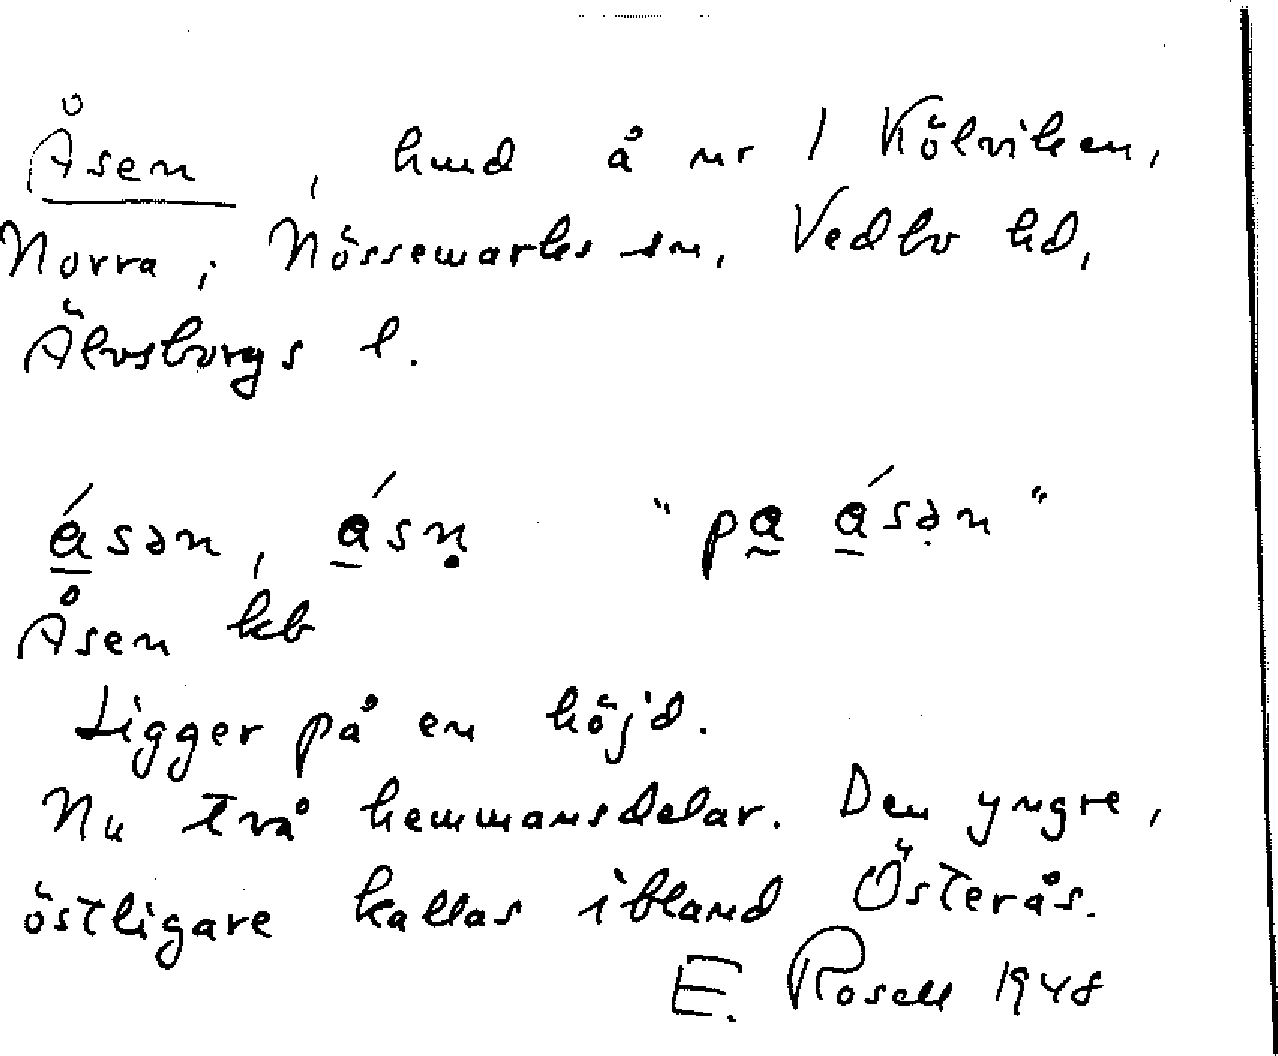 Åsen, hmd å nr 1 Kölviken,
Norra, Nössemarks sn, Vedbo hd,
Älvsborgs l.
ásən, ásṇ "pa ásən"
Åsen kb
Ligger på en höjd.
Nu två hemmansdelar. Den yngre,
östligare kallas ibland Österås.
E. Rosell 1948